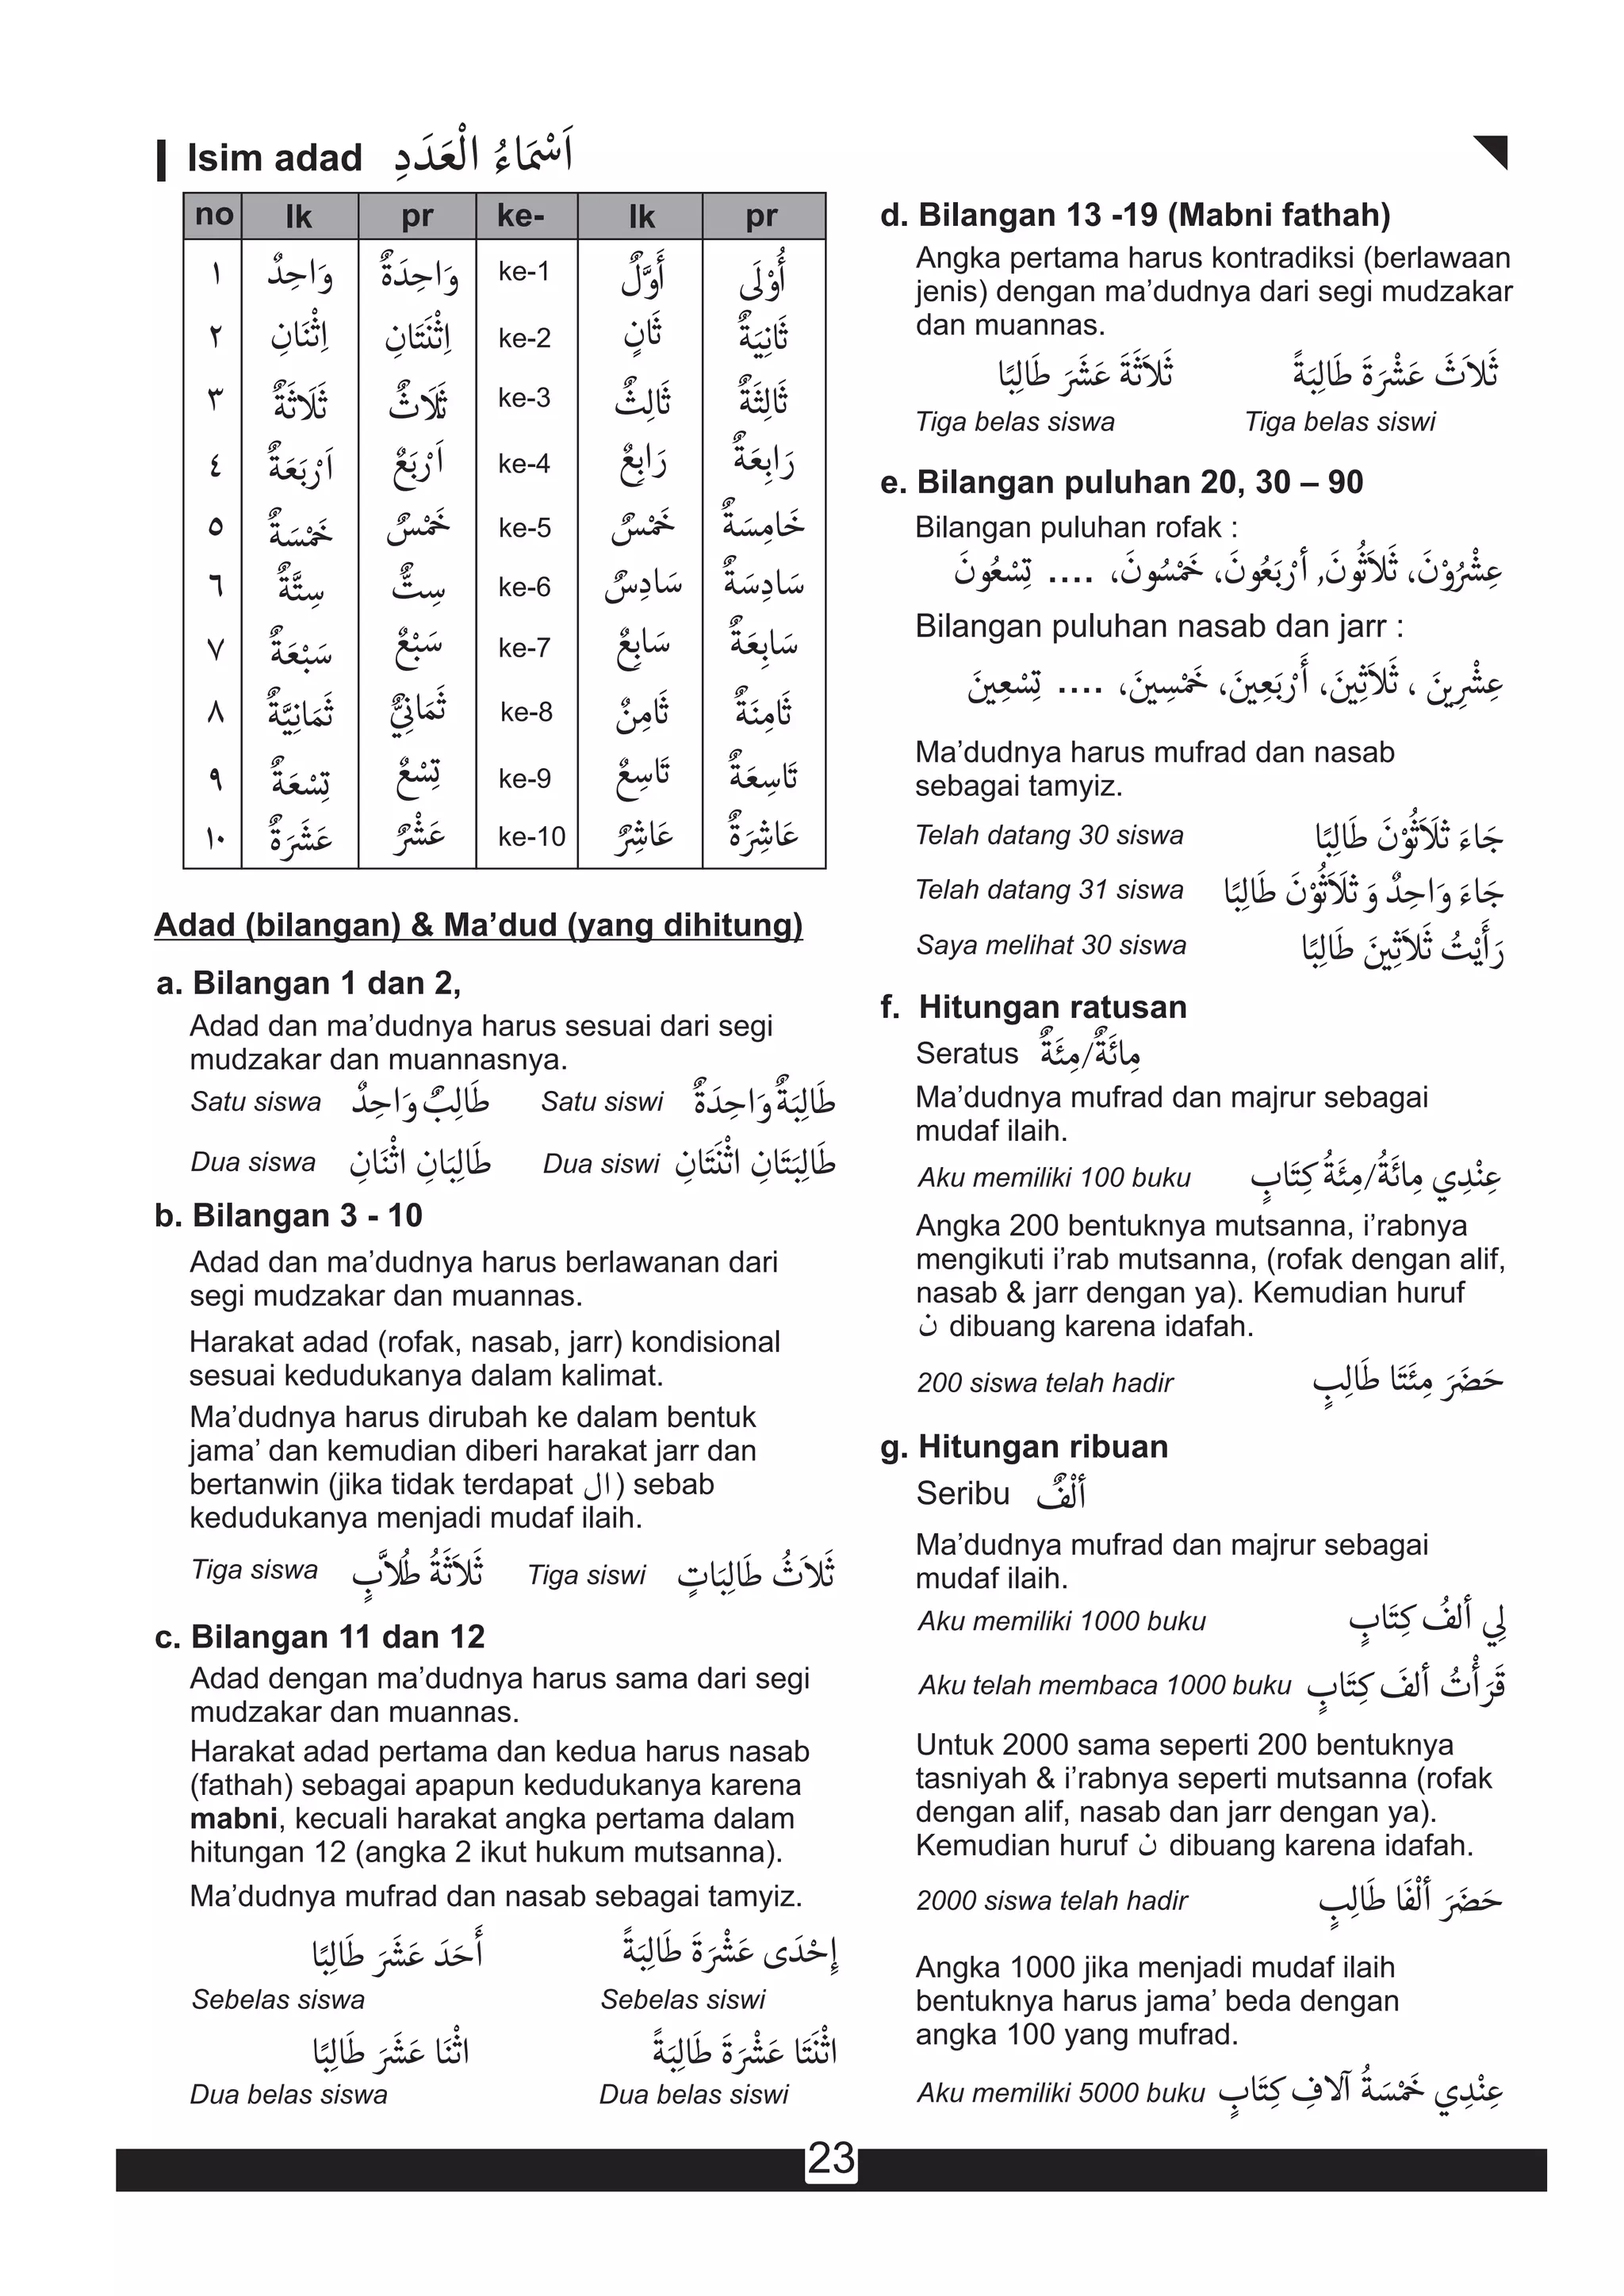 Isim adad أَسْمَاءُ الْعَدَدِ
no lk pr ke- lk pr
١ وَاحِدٌ وَاحِدَةٌ ke-1 أَوَّلٌ أُوْلَى
٢ اِثْنَانِ اِثْنَتَانِ ke-2 ثَانٍ ثَانِيَةٌ
٣ ثَلَاثَةٌ ثَلَاثٌ ke-3 ثَالِثٌ ثَالِثَةٌ
٤ اَرْبَعَةٌ اَرْبَعٌ ke-4 رَابِعٌ رَابِعَةٌ
٥ خَمْسَةٌ خَمْسٌ ke-5 خَمْسٌ خَامِسَةٌ
٦ سِتَّةٌ سِتٌّ ke-6 سَادِسٌ سَادِسَةٌ
٧ سَبْعَةٌ سَبْعٌ ke-7 سَابِعٌ سَابِعَةٌ
٨ ثَمَانِيَّةٌ ثَمَانِيٌّ ke-8 ثَامِنٌ ثَامِنَةٌ
٩ تِسْعَةٌ تِسْعٌ ke-9 تَاسِعٌ تَاسِعَةٌ
١٠ عَشَرَةٌ عَشْرٌ ke-10 عَاشِرٌ عَاشِرَةٌ
Adad (bilangan) & Ma’dud (yang dihitung)
a. Bilangan 1 dan 2,
Adad dan ma’dudnya harus sesuai dari segi
mudzakar dan muannasnya.
Satu siswa طَالِبٌ وَاحِدٌ Satu siswi طَالِبَةٌ وَاحِدَةٌ
Dua siswa طَالِبَانِ اثْنَانِ Dua siswi طَالِبَتَانِ اثْنَتَانِ
b. Bilangan 3 - 10
Adad dan ma’dudnya harus berlawanan dari
segi mudzakar dan muannas.
Harakat adad (rofak, nasab, jarr) kondisional
sesuai kedudukanya dalam kalimat.
Ma’dudnya harus dirubah ke dalam bentuk
jama’ dan kemudian diberi harakat jarr dan
bertanwin (jika tidak terdapat ال) sebab
kedudukanya menjadi mudaf ilaih.
Tiga siswa ثَلَاثَةُ طُلَّابٍ Tiga siswi ثَلَاثُ طَالِبَاتٍ
c. Bilangan 11 dan 12
Adad dengan ma’dudnya harus sama dari segi
mudzakar dan muannas.
Harakat adad pertama dan kedua harus nasab
(fathah) sebagai apapun kedudukanya karena
mabni, kecuali harakat angka pertama dalam
hitungan 12 (angka 2 ikut hukum mutsanna).
Ma’dudnya mufrad dan nasab sebagai tamyiz.
أَحَدَ عَشَرَ طَالِبًا إِحْدَى عَشْرَةَ طَالِبَةً
Sebelas siswa Sebelas siswi
اثْنَا عَشَرَ طَالِبًا اثْنَتَا عَشْرَةَ طَالِبَةً
Dua belas siswa Dua belas siswi
d. Bilangan 13 -19 (Mabni fathah)
Angka pertama harus kontradiksi (berlawaan
jenis) dengan ma’dudnya dari segi mudzakar
dan muannas.
ثَلَاثَةَ عَشَرَ طَالِبًا ثَلَاثَ عَشْرَةَ طَالِبَةً
Tiga belas siswa Tiga belas siswi
e. Bilangan puluhan 20, 30 – 90
Bilangan puluhan rofak :
عِشْرُوْنَ، ثَلَاثُونَ, أرْبَعُونَ، خَمْسُونَ، .... تِسْعُونَ
Bilangan puluhan nasab dan jarr :
عِشْرِينَ ، ثَلَاثِينَ، أَرْبَعِينَ، خَمْسِينَ، .... تِسْعِينَ
Ma’dudnya harus mufrad dan nasab
sebagai tamyiz.
Telah datang 30 siswa جَاءَ ثَلَاثُوْنَ طَالِبًا
Telah datang 31 siswa جَاءَ وَاحِدٌ وَ ثَلَاثُوْنَ طَالِبًا
Saya melihat 30 siswa رَأَيْتُ ثَلَاثِينَ طَالِبًا
f. Hitungan ratusan
Seratus مِائَةٌ/مِئَةٌ
Ma’dudnya mufrad dan majrur sebagai
mudaf ilaih.
Aku memiliki 100 buku عِنْدِي مِائَةُ/مِئَةُ كِتَابٍ
Angka 200 bentuknya mutsanna, i’rabnya
mengikuti i’rab mutsanna, (rofak dengan alif,
nasab & jarr dengan ya). Kemudian huruf
ن dibuang karena idafah.
200 siswa telah hadir حَضَرَ مِئَتَا طَالِبٍ
g. Hitungan ribuan
Seribu أَلْفٌ
Ma’dudnya mufrad dan majrur sebagai
mudaf ilaih.
Aku memiliki 1000 buku لِي ألفُ كِتَابٍ
Aku telah membaca 1000 buku قَرَأْتُ ألفَ كِتَابٍ
Untuk 2000 sama seperti 200 bentuknya
tasniyah & i’rabnya seperti mutsanna (rofak
dengan alif, nasab dan jarr dengan ya).
Kemudian huruf ن dibuang karena idafah.
2000 siswa telah hadir حَضَرَ ألْفَا طَالِبٍ
Angka 1000 jika menjadi mudaf ilaih
bentuknya harus jama’ beda dengan
angka 100 yang mufrad.
Aku memiliki 5000 buku عِنْدِي خَمْسَةُ آلافِ كِتَابٍ
23